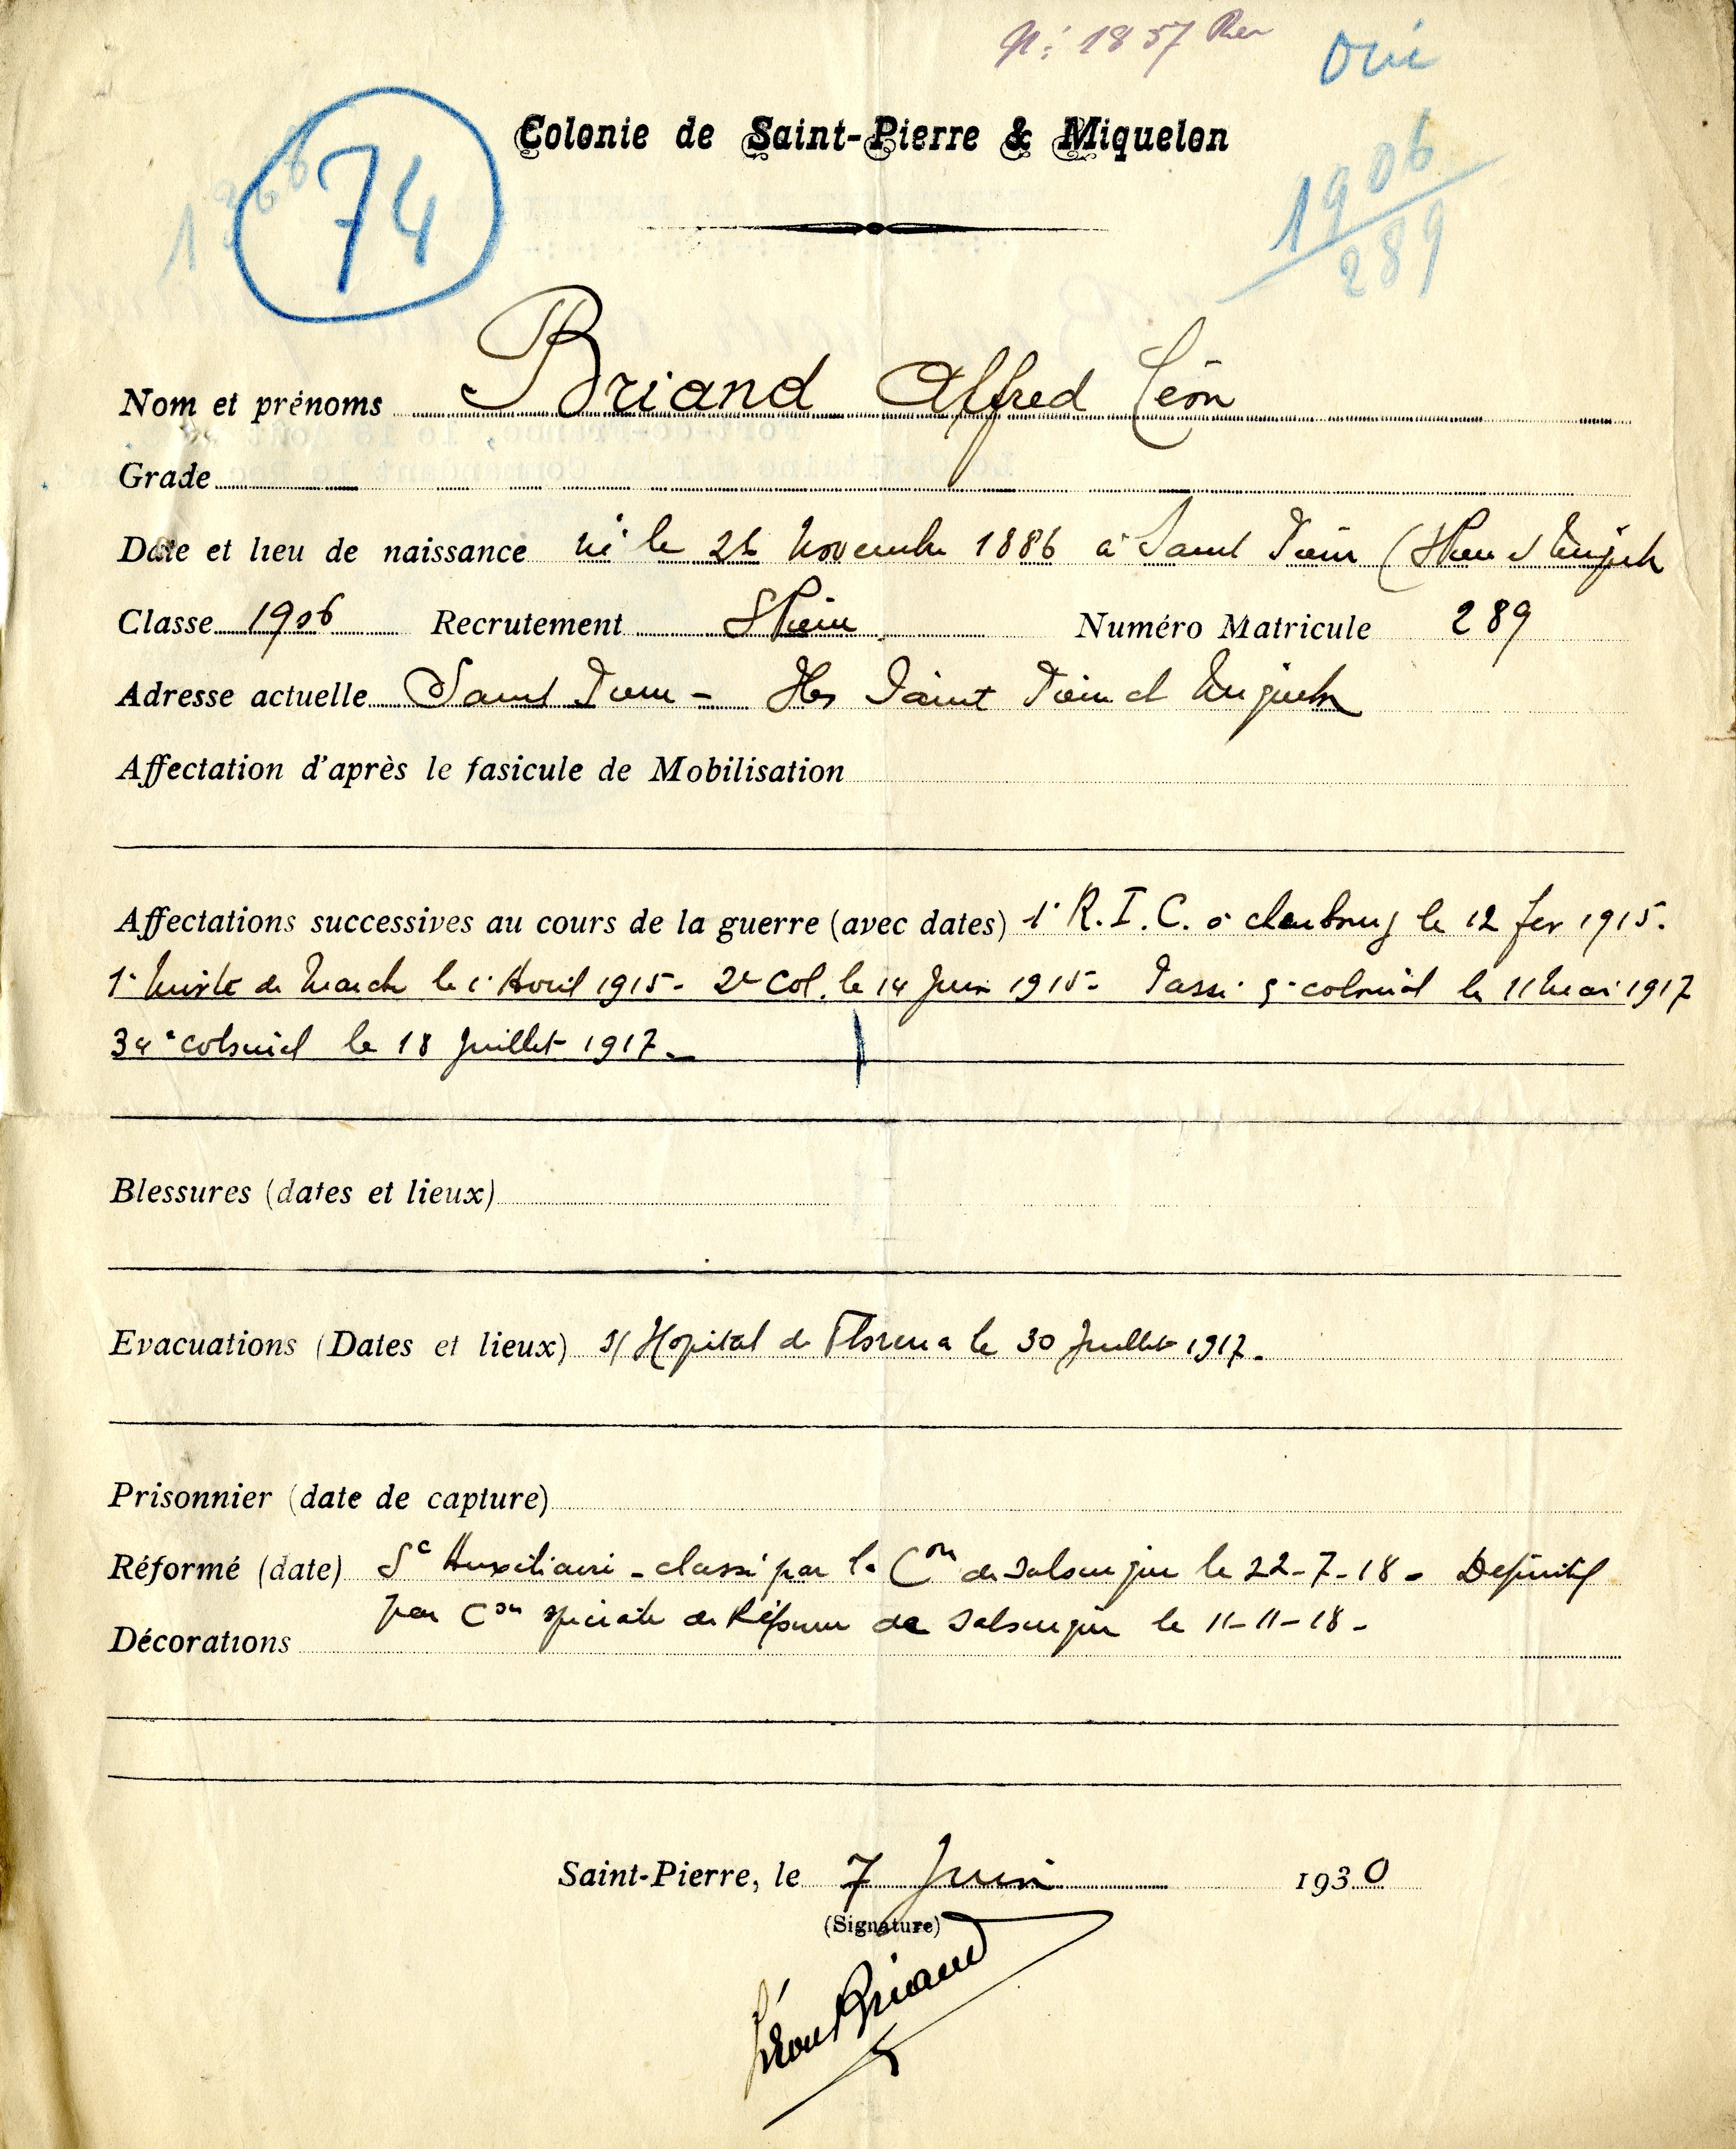 N: 1857
Oui
Colonie de Saint-Pierre & Miquelon
74
1906
289
Nom et prénoms Briand Alfred Léon
Grade
Date et lieu de naissance né le Novembre 1886 à Saint Pierre (
Classe 1906 Recrutement St Pierre Numéro Matricule 289
Adresse actuelle Saint Pierre - Iles Saint Pierre et Miquelon
Affectation d'après le fasicule de Mobilisation
Affectations successives au cours de la guerre (avec dates) 1° R.I.C. à cherbourg le 12 fev 1915.
1° Mixte de Marche le 1° Avril 1915 - 2e Col. le 14 Juin 1915 - Passé 5° colonial le 11 Mai 1917
34° colonial le 18 Juillet 1917.
Blessures (dates et lieux)
Evacuations (Dates et lieux) S/ Hopital de Florina le 30 Juillet 1917.
Prisonnier (date de capture)
Réformé (date) Sc Auxiliaire - classé par la Con de le 22-7-18 - Definitif
par Con speciale de Réforme de le 11-11-18 -
Décorations
Saint-Pierre, le 7 Juin 1930
(Signature)
Léon Briand